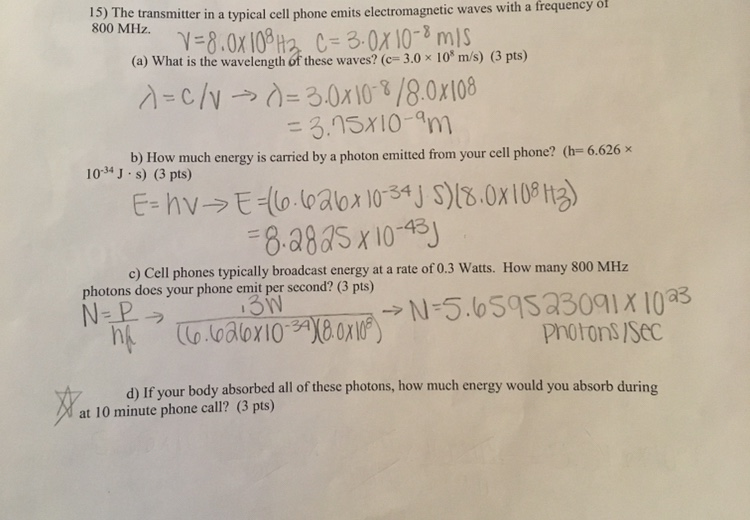 15) The transmitter in a typical cell phone emits electromagnetic waves with a frequency of
800 MHz.
V=8.0X10⁸Hz C=3.0X10⁻⁸ m/s
(a) What is the wavelength of these waves? (c= 3.0 × 10⁸ m/s) (3 pts)
λ=C/V → λ= 3.0X10⁻⁸/8.0X108
= 3.75X10⁻⁹m
b) How much energy is carried by a photon emitted from your cell phone? (h= 6.626 ×
10⁻³⁴ J · s) (3 pts)
E=hV → E=(6.626x10⁻³⁴J S)(8.0X10⁸Hz)
=8.2825 X 10⁻⁴³J
c) Cell phones typically broadcast energy at a rate of 0.3 Watts. How many 800 MHz
photons does your phone emit per second? (3 pts)
N=P/hf → .3W/(6.626X10⁻³⁴)(8.0X10⁸) → N=5.659523091 X 10²³
Photons/Sec
d) If your body absorbed all of these photons, how much energy would you absorb during
at 10 minute phone call? (3 pts)